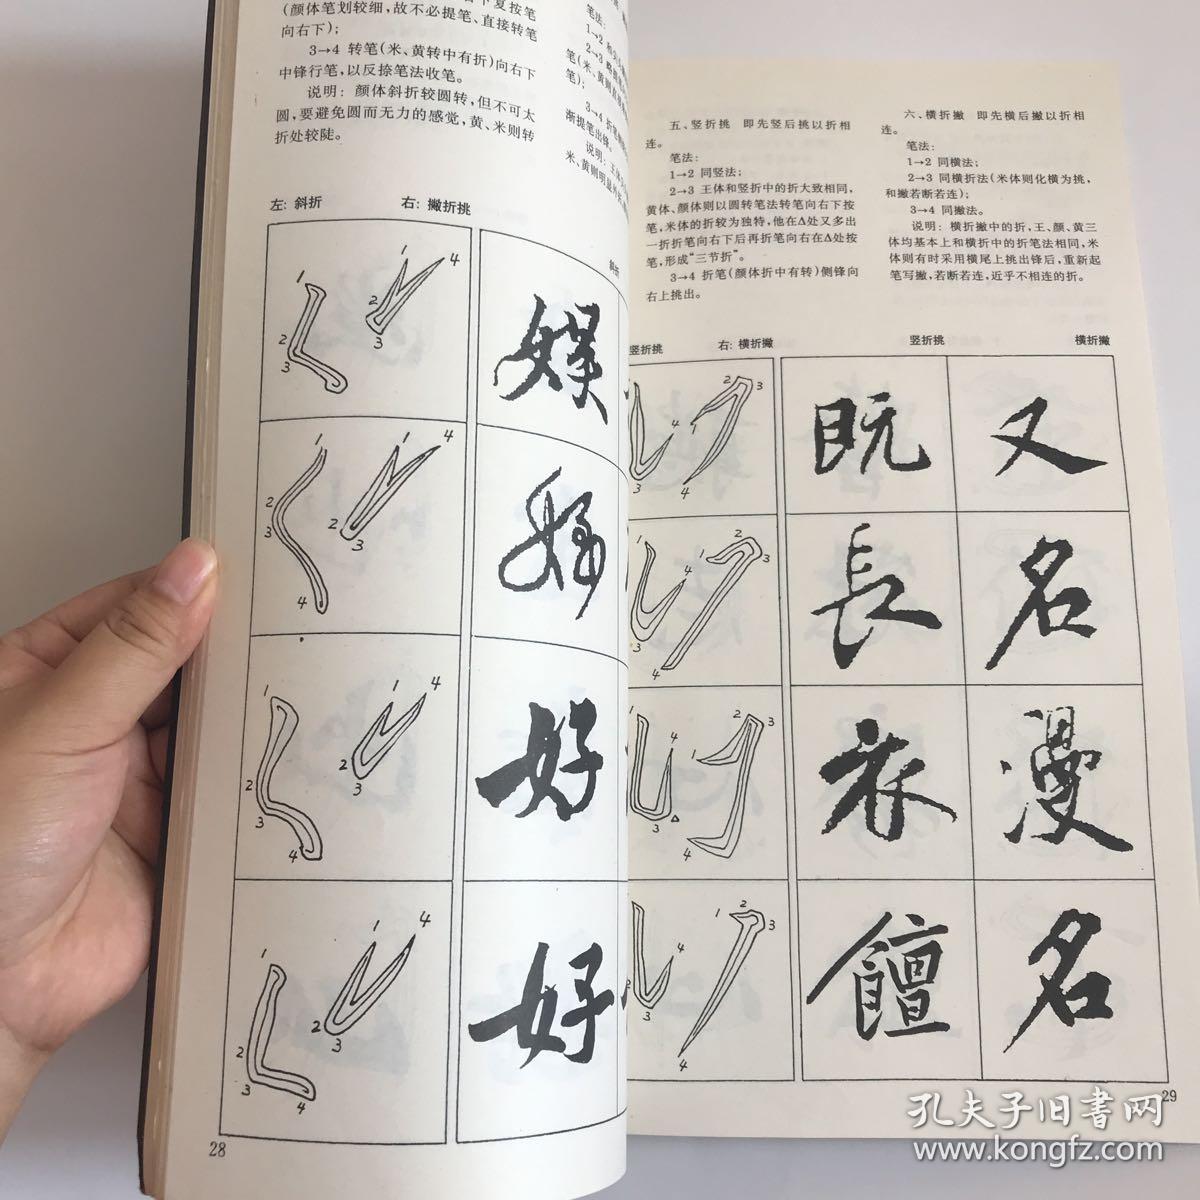 (颜体笔划较细,故不必提笔、直接转笔
向右下);
3→4 转笔(米、黄转中有折)向右下
中锋行笔,以反捺笔法收笔。
说明: 颜体斜折较圆转,但不可太
圆,要避免圆而无力的感觉,黄、米则转
折处较陡。
笔法:
渐提笔出锋。
左: 斜折 右: 撇折挑
斜折
1 4
2
3
1
2
3
4
1 4
2
3
1
2
3
4
1 4
2
3
1
2
3
4
1 4
2
3
1
2
3 4
好
好
28
五、竖折挑 即先竖后挑以折相
连。
笔法:
1→2 同竖法;
2→3 王体和竖折中的折大致相同,
黄体、颜体则以圆转笔法转笔向右下按
笔,米体的折较为独特,他在Δ处又多出
一折折笔向右下后再折笔向右在Δ处按
笔,形成“三节折”。
3→4 折笔(颜体折中有转)侧锋向
右上挑出。
六、横折撇 即先横后撇以折相
连。
笔法:
1→2 同横法;
2→3 同横折法(米体则化横为挑,
和撇若断若连);
3→4 同撇法。
说明: 横折撇中的折,王、颜、黄三
体均基本上和横折中的折笔法相同,米
体则有时采用横尾上挑出锋后,重新起
笔写撇,若断若连,近乎不相连的折。
竖折挑 右: 横折撇 竖折挑 横折撇
既 又
長 名
衣 漫
饘 名
29
孔夫子旧书网
www.kongfz.com